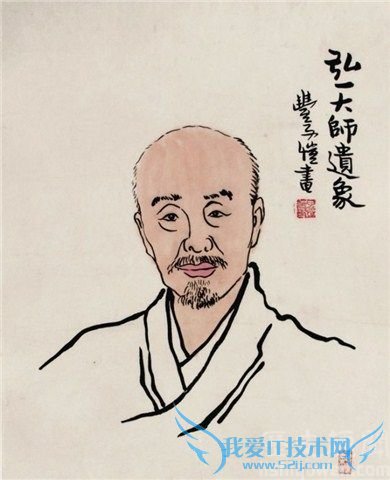 弘一大師遺象
豐子愷畫
我爱IT技术网
www.52ij.com